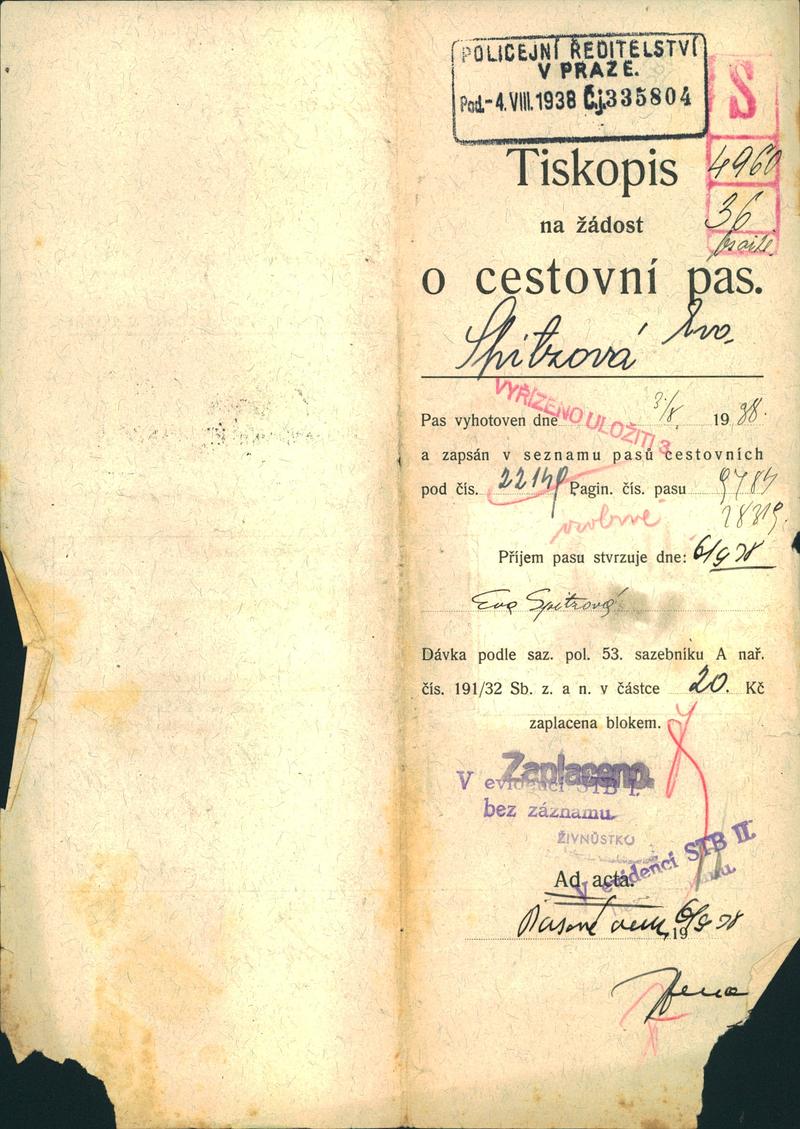 POLICEJNÍ ŘEDITELSTVÍ
V PRAZE.
Pod.-4.VIII.1938 Č.j.335804
S
4960
36
Tiskopis
na žádost
o cestovní pas.
Spitzová Eva.
VYŘÍZENO ULOŽITI 3
Pas vyhotoven dne 3/8. 1938.
a zapsán v seznamu pasů cestovních
pod čís. 22149 Pagin. čís. pasu 9784
28319.
osobně
Příjem pasu stvrzuje dne: 6/9 38
Eva Spitzová
Dávka podle saz. pol. 53. sazebníku A nař.
čís. 191/32 Sb. z. a n. v částce 20. Kč
zaplacena blokem.
Zaplaceno.
V evidenci STB I.
bez záznamu.
ŽIVNŮSTKO
V evidenci STB II.
Ad acta.
6/9 1938